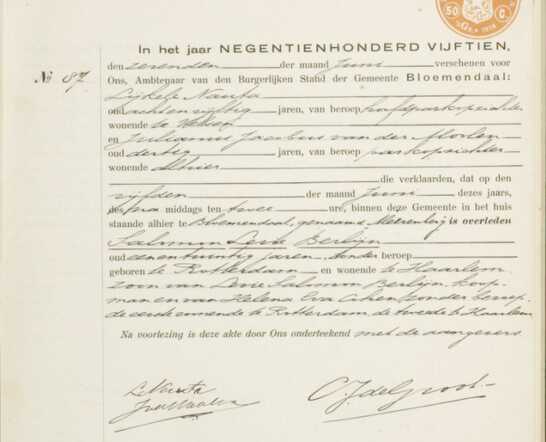 50 C.
In het jaar NEGENTIENHONDERD VIJFTIEN,
No 87
den zevenden der maand Juni verschenen voor
Ons, Ambtenaar van den Burgerlijken Stand der Gemeente Bloemendaal:
Nauta
oud achtenvijftig jaren, van beroep
wonende te
en Julianus Jacobus van der
oud dertig jaren, van beroep
wonende alhier
die verklaarden, dat op den
vijfden der maand Juni dezes jaars,
des na middags ten twee ure, binnen deze Gemeente in het huis
staande alhier te Bloemendaal, genaamd Meerenberg is overleden
Salomon Levie Berlijn
oud eenentwintig jaren, zonder beroep
geboren te Rotterdam en wonende te Haarlem
zoon van Levie Salomon Berlijn, koop-
man en van Helena Eva Cohen zonder beroep,
de eerste wonende te Rotterdam de tweede te Haarlem
Na voorlezing is deze akte door Ons onderteekend met de aangevers.
L Nauta